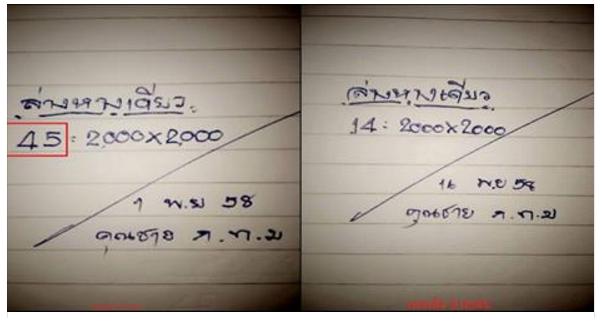 ล่างหางเดียว
45: 2,000x2,000
1 พ.ย 58
คุณชาย ภ.ท.ม
ล่างหางเดียว
14: 2000x2000
16 พ.ย 58
คุณชาย ภ.ท.ม